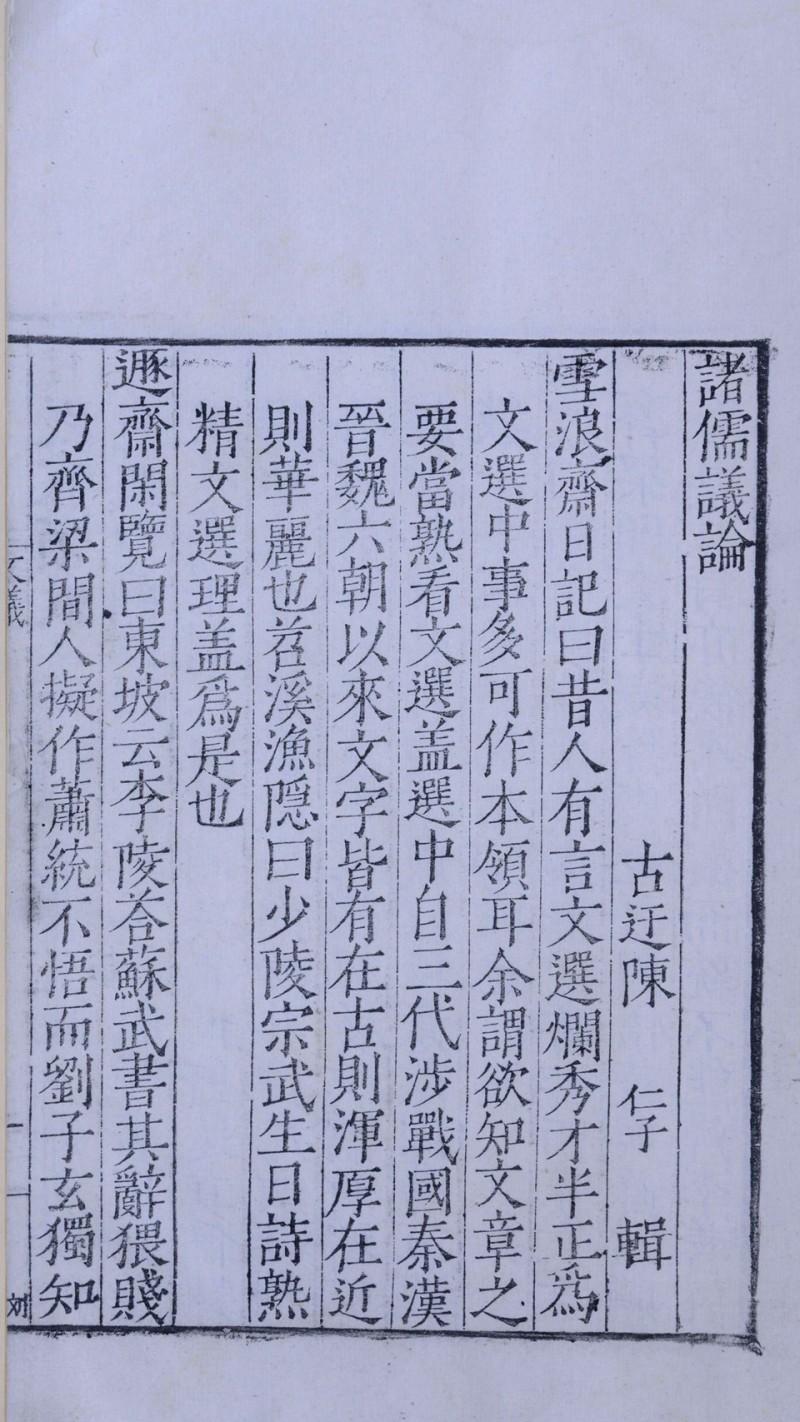 諸儒議論
古迂陳 仁子 輯
雪浪齋日記曰昔人有言文選爛秀才半正爲
文選中事多可作本領耳余謂欲知文章之
要當熟看文選盖選中自三代涉戰國秦漢
晉魏六朝以來文字皆有在古則渾厚在近
則華麗也苕溪漁隱曰少陵宗武生日詩熟
精文選理盖爲是也
遯齋閑覽曰東坡云李陵荅蘇武書其辭猥賤
乃齊梁間人擬作蕭統不悟而劉子玄獨知
文議